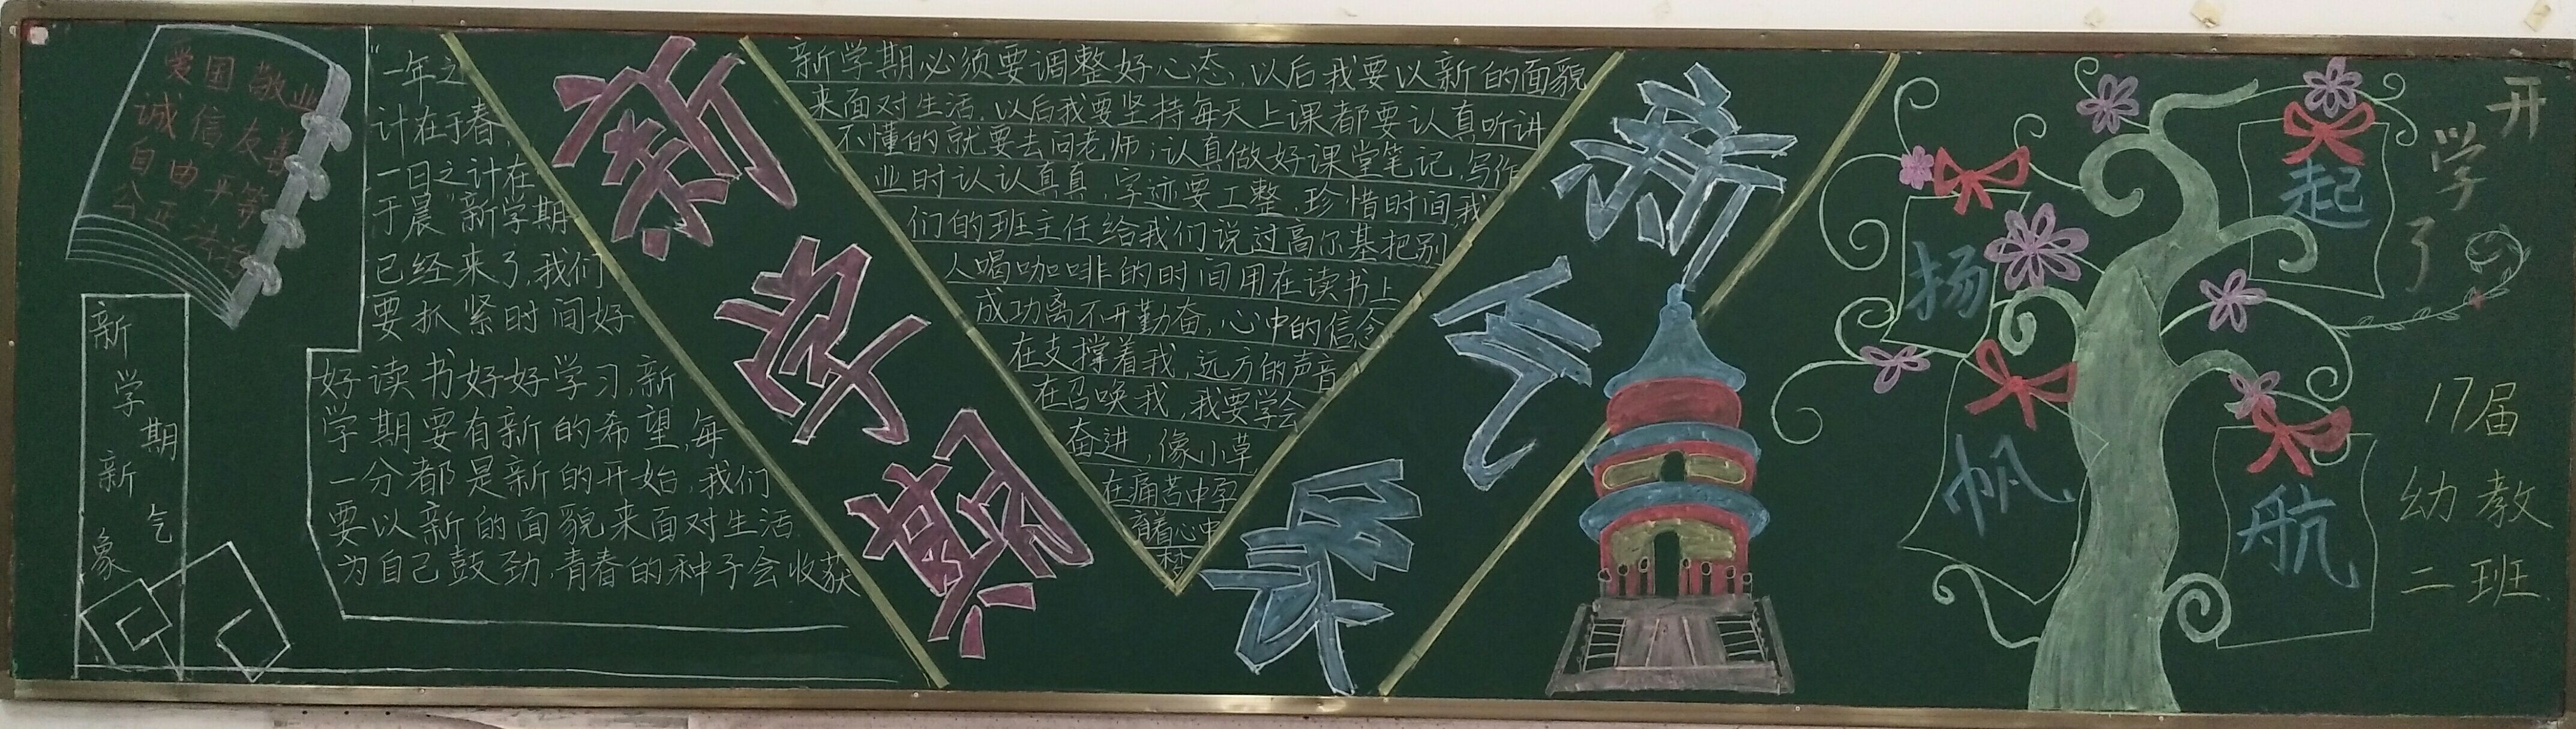 爱国 敬业
诚信 友善
自由 平等
公正 法治
新学期新气象
"一年之
计在于春,
一日之计在
于晨"新学期
已经来了,我们
要抓紧时间好
好读书好好学习,新
学期要有新的希望,每
一分都是新的开始,我们
要以新的面貌来面对生活
为自己鼓劲,青春的种子会收获
新学期
新学期必须要调整好心态,以后我要以新的面貌
来面对生活.以后我要坚持每天上课都要认真听讲
不懂的就要去问老师;认真做好课堂笔记,写作
业时认认真真,字迹要工整,珍惜时间,我
们的班主任给我们说过高尔基把别
人喝咖啡的时间用在读书上
成功离不开勤奋,心中的信念
在支撑着我,远方的声音
在召唤我,我要学会
奋进,像小草
在痛苦中孕
育着心中
梦
新气象
扬
帆
起
航
开学了
17届
幼教
二班